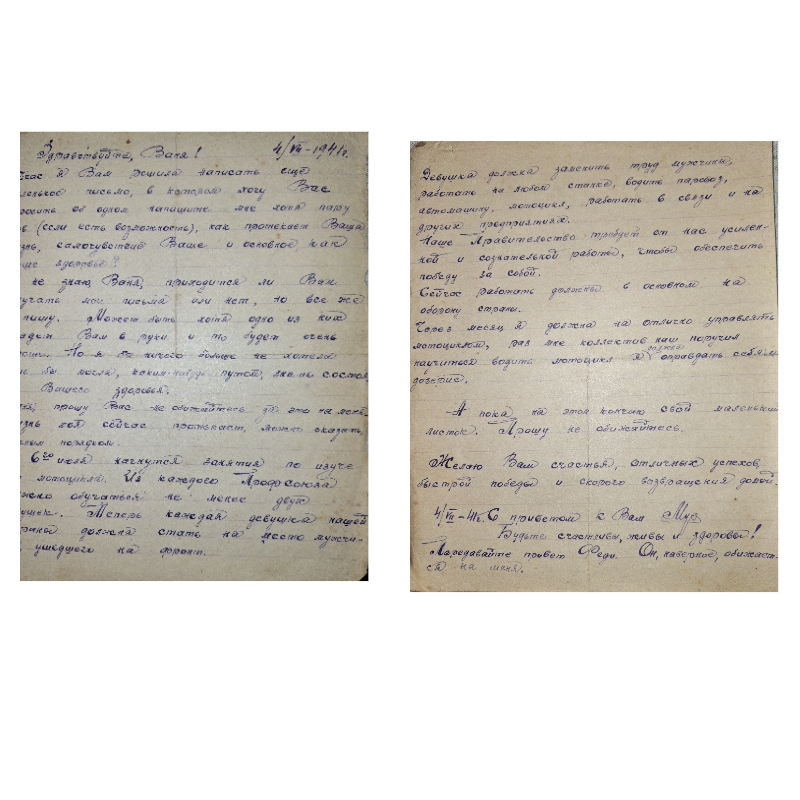 Здравствуйте, Ваня! 4/VII-1941г.
час я Вам решила написать ещё
ленькое письмо, в котором могу Вас
об одном напишите мне хотя пару
в (если есть возможность), как протекает Ваша
знь, самочувствие Ваше и основное, как
ше здоровье?
не знаю, Ваня, приходится ли Вам
учать мои письма или нет, но все же
пишу. Может быть хотя одно из них
адет Вам в руки и то будет очень
Но я ничего больше не хотела
бы могла, каким-нибудь путём,
Вашего здоровья.
прошу Вас не обижайтесь за это на меня.
изнь моя сейчас протекает, можно сказать,
ным порядком.
6го июля начнутся занятия по изуче
мотоцикла. Из каждого Профсоюза
жно обучаться не менее двух
ушек. Теперь каждая девушка нашей
раны должна стать на место мужчи-
ушедшего на фронт.
Девушка должна заменить труд мужчины,
работать на любом станке, водить паровоз,
автомашину, мотоцикл, работать в связи и на
других предприятиях.
Наше Правительство требует от нас усилен-
ной и сознательной работы, чтобы обеспечить
победу за собой.
Сейчас работать должны в основном на
оборону страны.
Через месяц я должна на отлично управлять
мотоциклом, раз мне коллектив наш поручил
научиться водить мотоцикл я должна оправдать себя и
доверие.
А пока на этом кончаю свой маленький
листок. Прошу не обижайтесь.
Желаю Вам счастья, отличных успехов,
быстрой победы и скорого возвращения домой.
4/VII-41г. С приветом к Вам
Будьте счастливы, живы и здоровы!
Передавайте привет Феди. Он, наверное, обижает-
ся на меня.